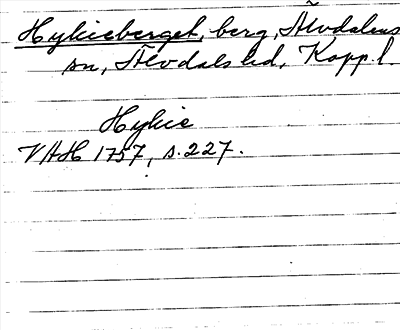 Hykieberget, berg, Älvdalens
sn, Älvdals hd, Kopp. l.
Hykie
VAH 1757, s. 227.